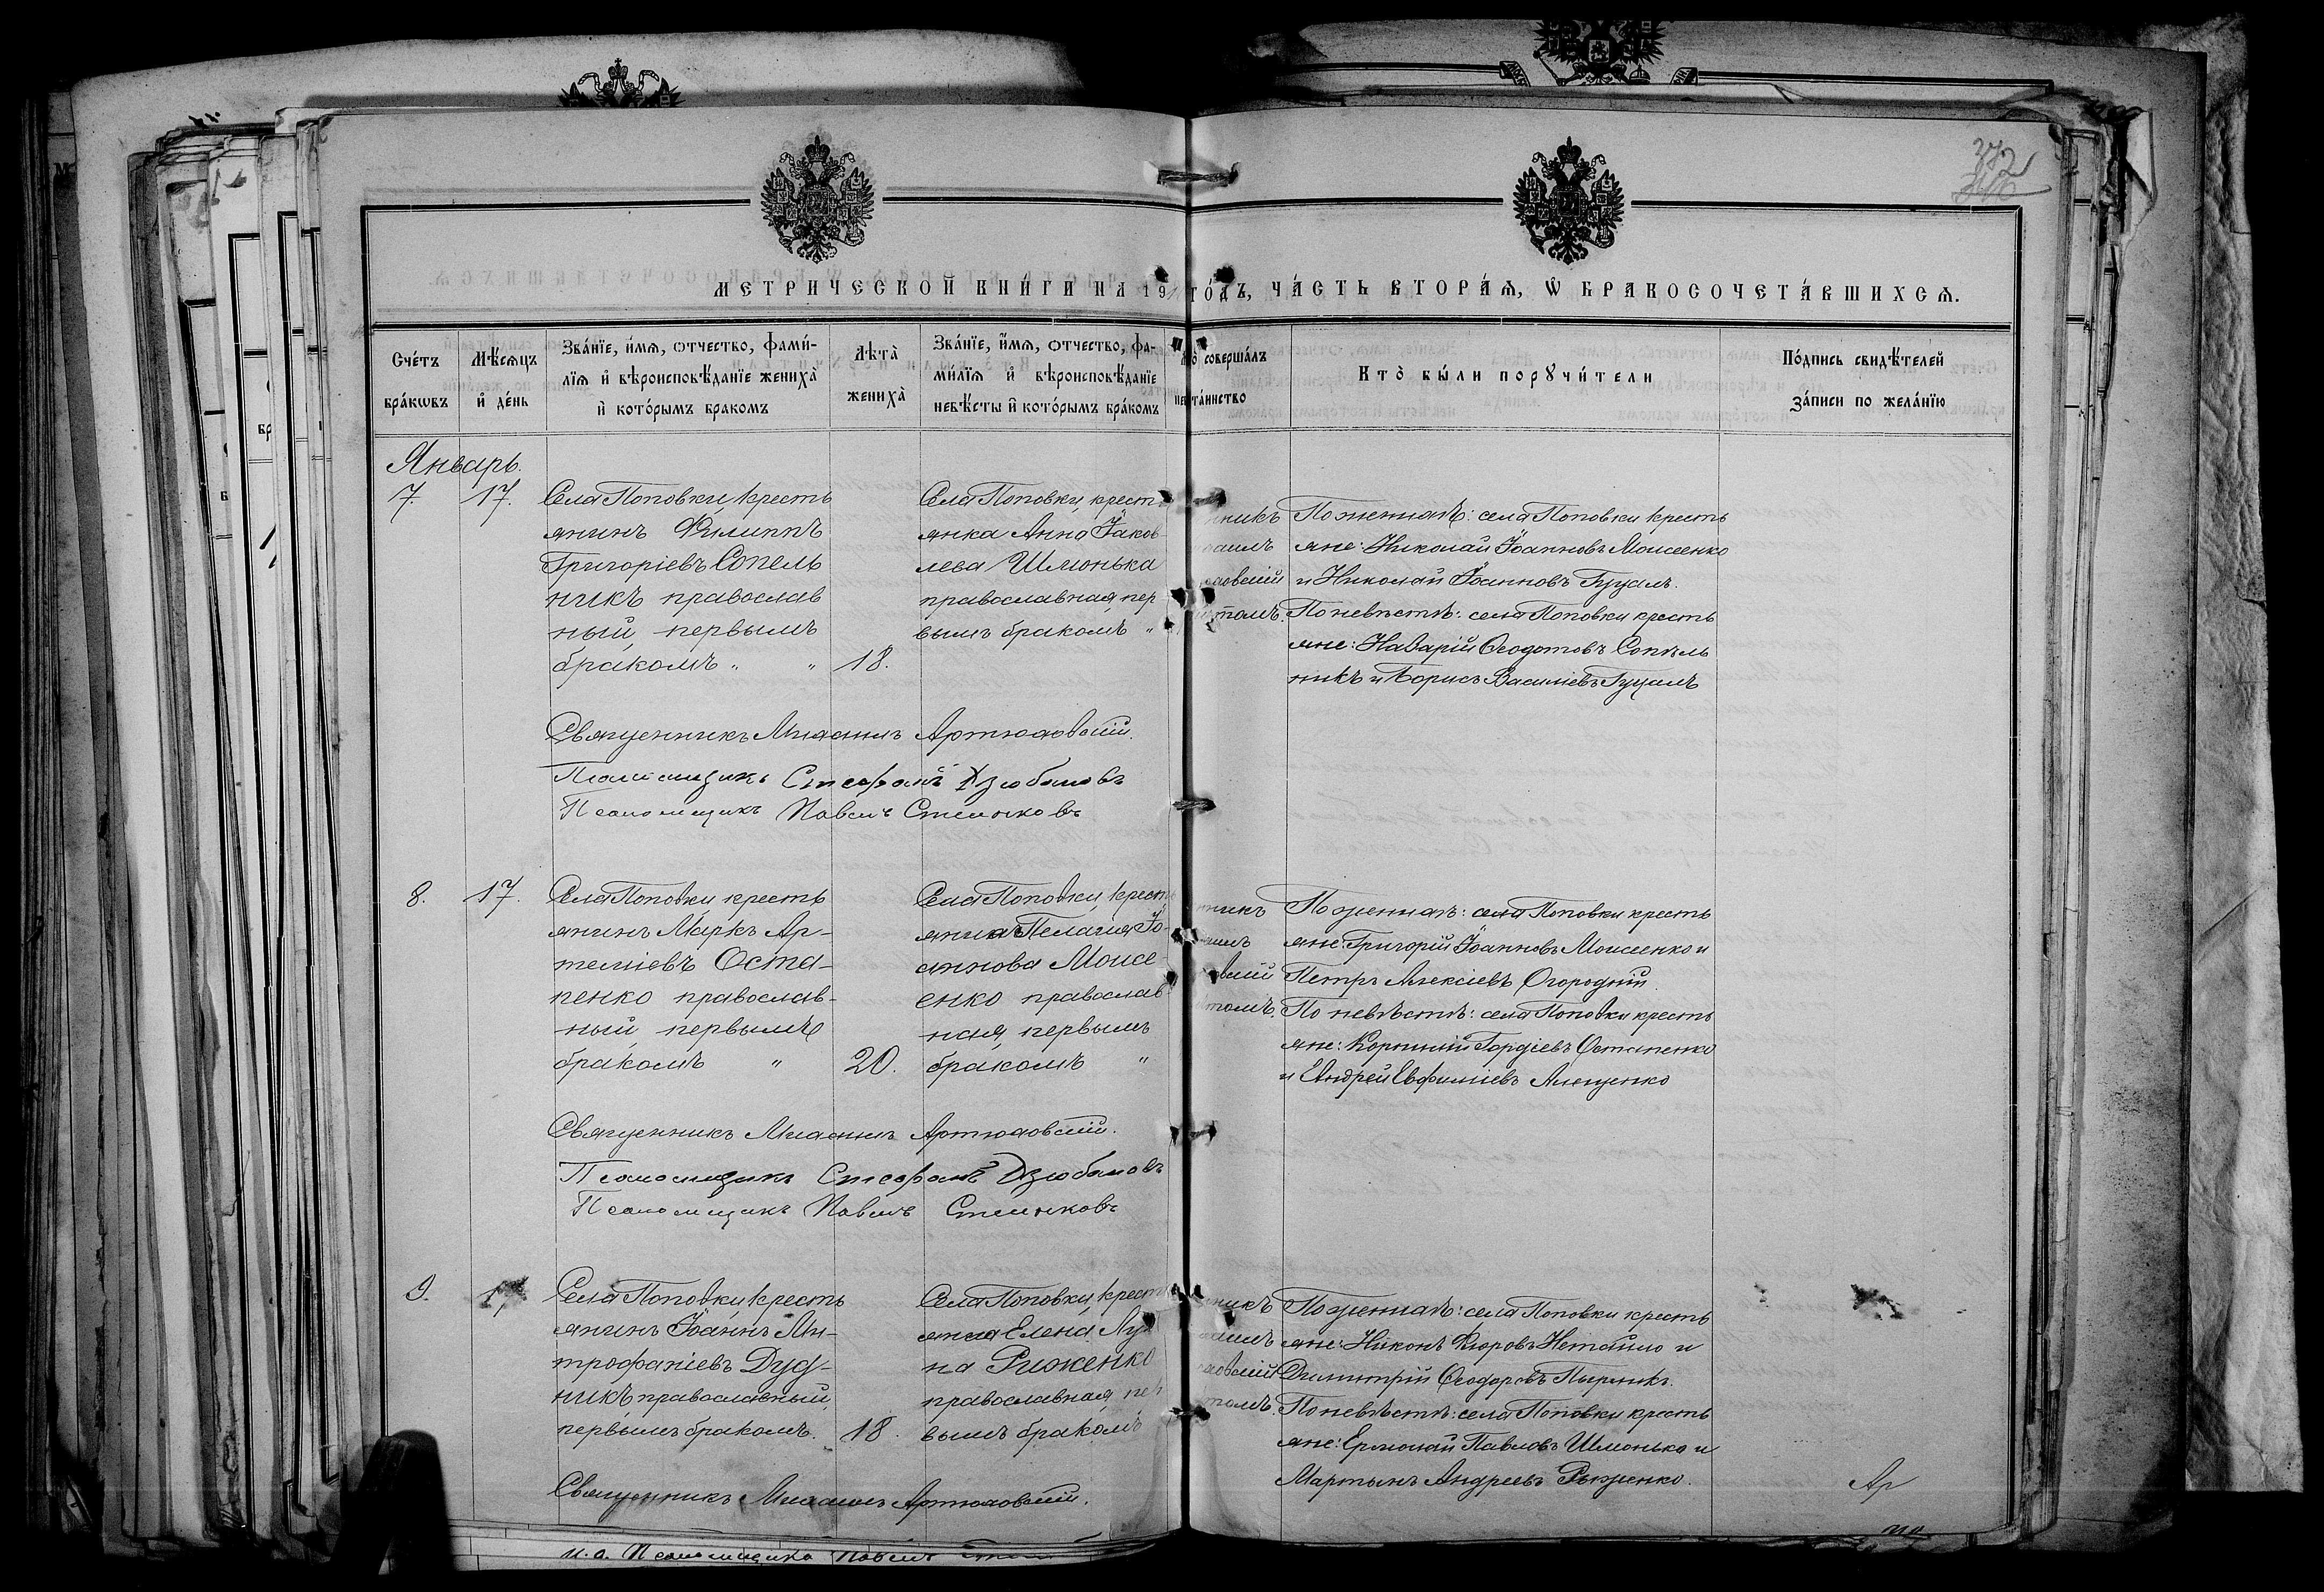 372
МЕТРИЧЕСКОЙ КНИ́ГИ НА 19 ГО́ДЪ, ЧА́СТЬ ВТОРА́Я, Ѡ БРАКОСОЧЕТА́ВШИХСѦ.
Сче́тъ бра́кѡвъ
Мѣ́сѧцъ и҆ де́нь
Зва́нїе, и҆́мѧ, ѻтчество, фами́-
лїѧ и҆ вѣроисповѣ́данїе жениха̀
и҆ кото́рымъ бракомъ
Лѣта̀ жениха̀
Зва́нїе, и҆́мѧ, ѻтчество, фа-
ми́лїѧ и҆ вѣроисповѣ́данїе
невѣ́сты и҆ кото́рымъ бра́комъ
совершалъ
таинство
Кто̀ бы́ли порꙋчи́тели
По́дпись свидѣ́телей
за́писи по жела́нїю
Январь.
7. 17.
Села Поповки, кресть
янинъ Филиппъ
Григоріевъ Сопель
никъ православ
ный, первымъ
бракомъ " " 18.
Села Поповки, крест
янка Анна Іаков-
лева Шмонька
православная, пер
вымъ бракомъ "
никъ
аилъ
овскій
томъ.
По женихѣ: села Поповки кресть
яне: Николай Іоанновъ Моисеенко
и Николай Іоанновъ Гуцалъ.
По невѣстѣ: села Поповки кресть
яне: Назарій Ѳеодотовъ Сопель
никъ и Борисъ Василіевъ Гуцалъ
Священникъ Михаилъ Артюховскій.
Псаломщикъ Стефанъ Дзюбановъ
Псаломщикъ Павелъ
8. 17.
Села Поповки кресть
янинъ Маркъ Ар-
теміевъ Оста-
пенко православ-
ный, первымъ
бракомъ " 20.
Села Поповки, крест
янка Пелагия Іо-
аннова Моисе-
енко православ
ная, первымъ
бракомъ "
никъ
вскій
томъ.
По женихѣ: села Поповки кресть
яне: Григорій Іоанновъ Моисеенко и
Петръ Алексіевъ Огородній.
По невѣстѣ: села Поповки кресть
яне: Корнилій Гордіевъ Остапенко
и Андрей Евфиміевъ Алещенко
Священникъ Михаилъ Артюховскій.
Псаломщикъ Стефанъ Дзюбановъ
Псаломщикъ Павелъ
9. 17
Села Поповки кресть
янинъ Іоаннъ Ми-
трофаніевъ Дуд-
никъ православный,
первымъ бракомъ. 18.
Села Поповки, крест
янка Елена
на Риженко
православная, пер
вымъ бракомъ
никъ
аилъ
ховскій
томъ.
По женихѣ: села Поповки кресть
яне: Никонъ Нетайло и
Димитрій Ѳеодоровъ
По невѣстѣ: села Поповки кресть
яне: Ермолай Павловъ Шмонька и
Мартынъ Андреевъ Рыженко.
Ар
Священникъ Михаилъ Артюховскій.
и.о. Псаломщика Павелъ